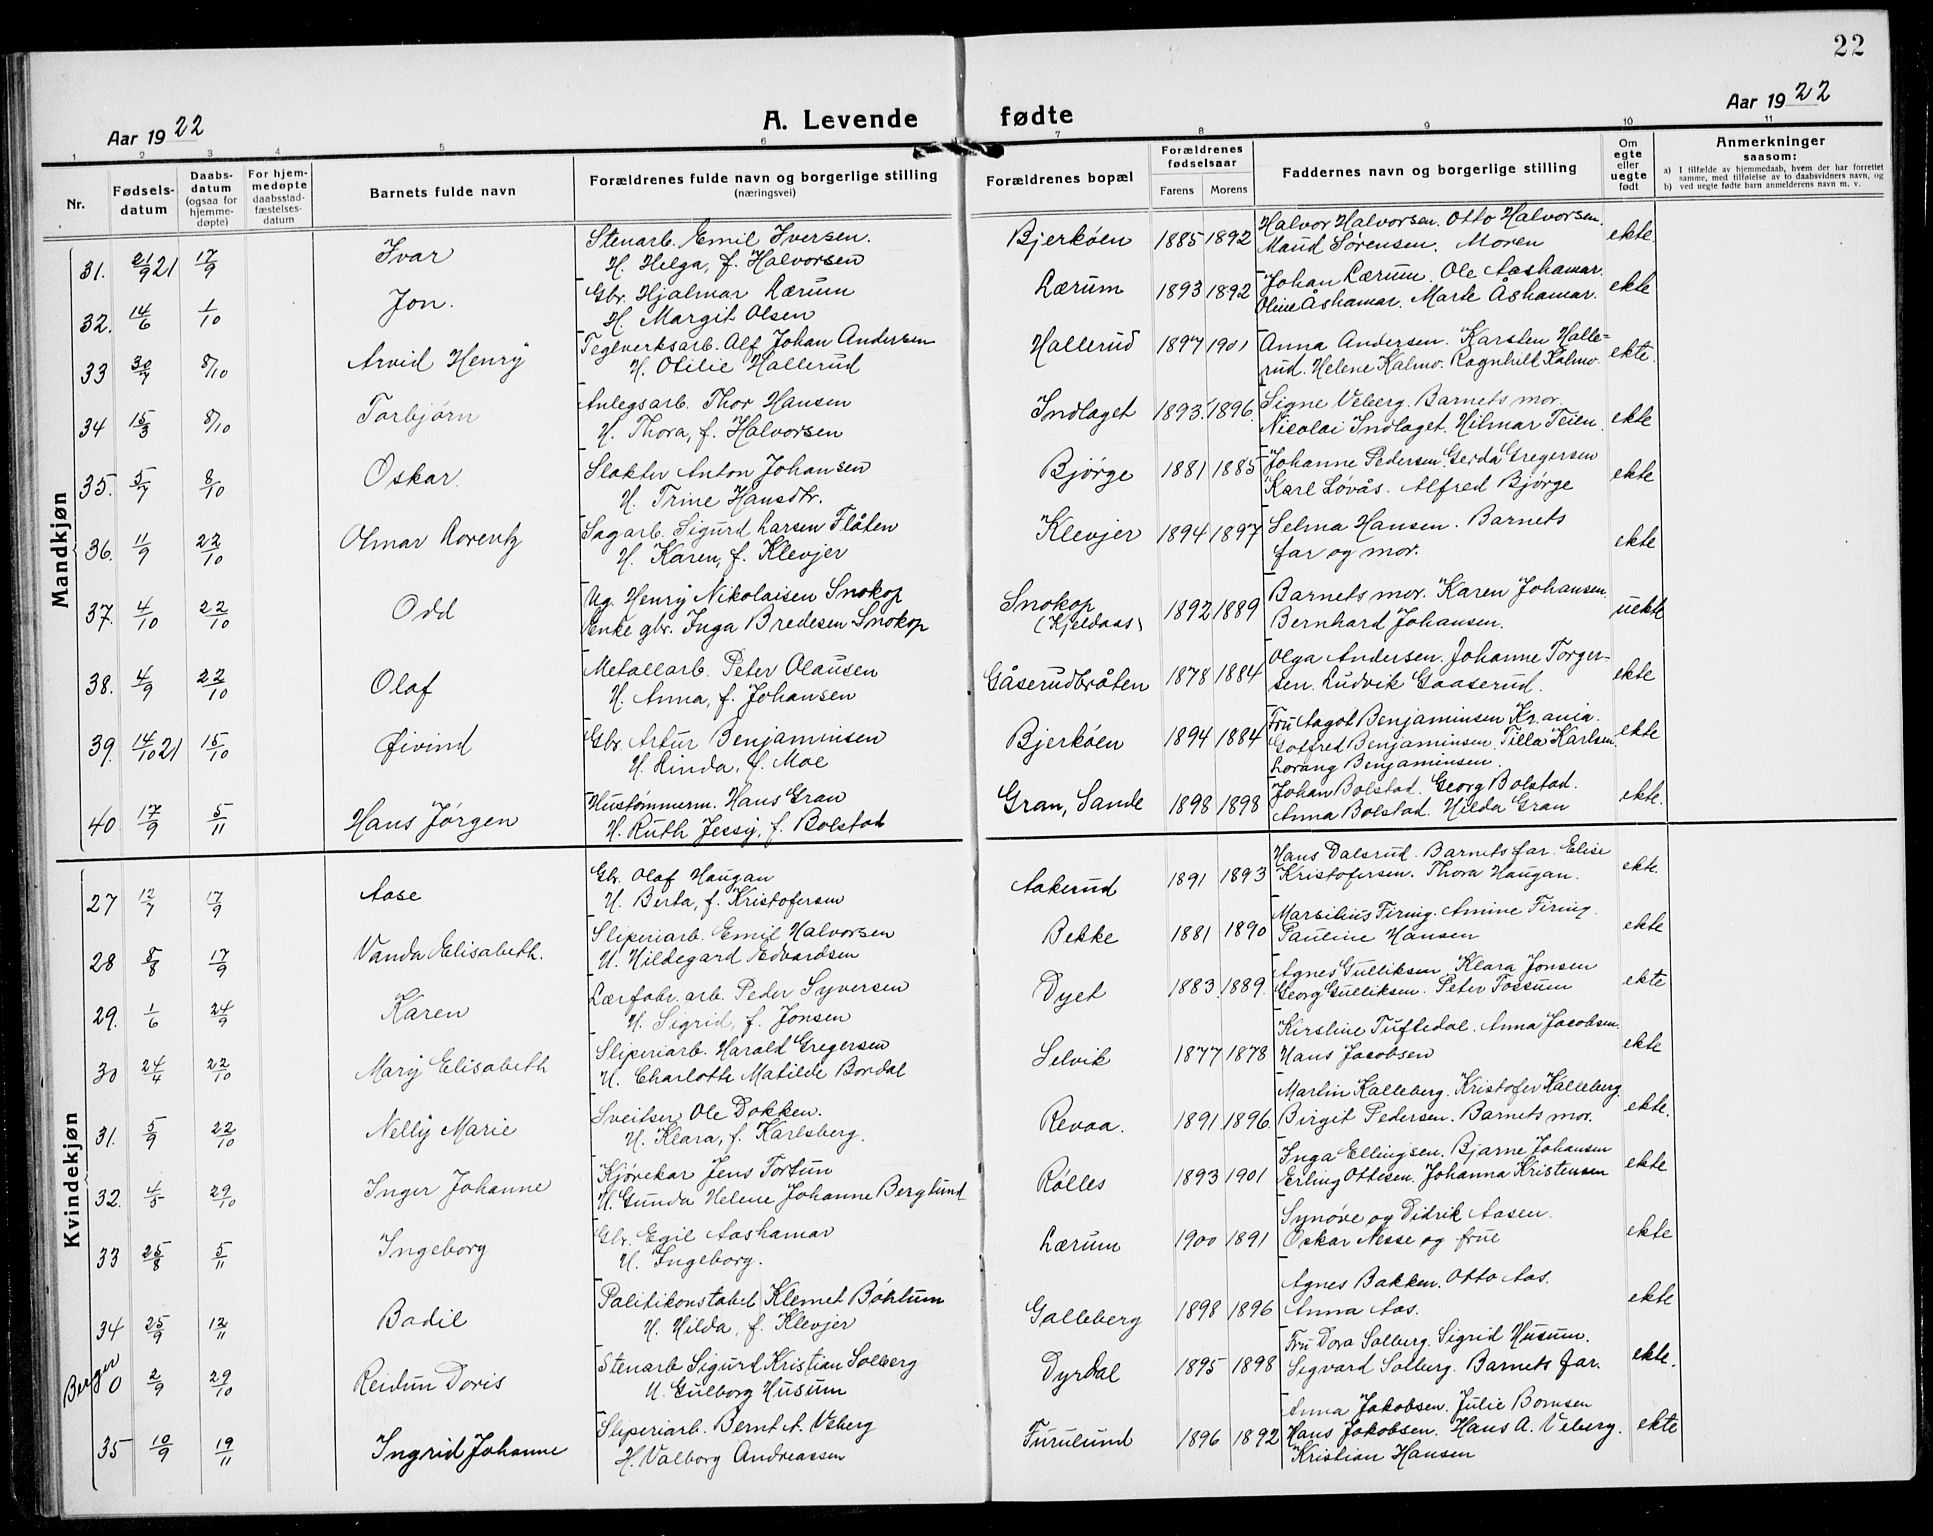 22
Aar 1922
A. Levende fødte
Aar 1922
1 2 3 4 5 6 7 8 9 10 11
Nr.
Fødsels-
datum
Daabs-
datum
(ogsaa for
hjemme-
døpte)
For hjem-
medøpte
daabsstad-
fæstelses-
datum
Barnets fulde navn
Forældrenes fulde navn og borgerlige stilling
(næringsvei)
Forældrenes bopæl
Forældrenes
fødselsaar
Farens Morens
Faddernes navn og borgerlige stilling
Om
egte
eller
uegte
født
Anmerkninger
saasom:
a) I tilfælde av hjemmedaab, hvem der har forrettet
samme, med tilføielse av to daabsvidners navn, og
b) ved uegte fødte barn anmelderens navn m. v.
Mandkjøn
31. 21/9 21 17/9 Ivar Stenarb. Emil Iversen. Bjerkøen 1885 1892 Halvor Halvorsen. Otto Halvorsen. ekte.
H. Helga, f. Halvorsen Maud Sørensen. Moren
32. 14/6 1/10 Jon. Gbr. Hjalmar Lærum Lærum 1893 1892 Johan Lærum. Ole Aashamar. ekte
H. Margit Olsen Oline Åshamar. Marte Åshamar.
33 30/7 8/10 Arvid Henry Teglverksarb. Alf Johan Andersen Hallerud 1897 1901 Anna Andersen. Karsten Halle- ekte.
H. Otilie Hallerud rud. Helene Kalmo. Ragnhild Kalmo.
34 15/3 8/10 Torbjørn Anlegsarb. Thor Hansen Indlaget 1893. 1896. Signe Veberg. Barnets mor. ekte
H. Thora, f. Halvorsen Nicolai Indlaget. Hilmar Teien.
35. 5/7 8/10 Oskar. Slakter Anton Johansen Bjørge 1881 1885 Johanne Pedersen. Gerda Gregersen ekte
H. Trine Hansdtr. Karl Løvås. Alfred Bjørge
36. 11/9 22/10 Olmar Lorentz Sagarb. Sigurd Larsen Flåten Klevjer 1894 1897 Selma Hansen. Barnets ekte
H. Karen, f. Klevjer far og mor.
37. 4/10 22/10 Odd Ug. Henry Nikolaisen Snokop Snokop (Kjeldaas) 1892 1889 Barnets mor. Karen Johansen. uekte
Enke gbr. Inga Bredesen Snokop Bernhard Johansen.
38. 4/9 22/10 Olaf Metallarb. Peter Olausen Gåserudbråten 1878 1884 Olga Andersen. Johanne Torger- ekte
H. Anna, f. Johansen sen. Ludvik Gaaserud.
39. 14/10 21 15/10 Øivind Gbr. Artur Benjaminsen Bjerkøen 1894 1884 Fru Aagot Benjaminsen Kr.ania. ekte
H. Linda, f. Moe Gotfred Benjaminsen. Tilla Karlsen.
Lorang Benjaminsen.
40 17/9 5/11 Hans Jørgen Hustømmerm. Hans Gran Gran, Sande 1898 1898 Johan Bolstad. Georg Bolstad. ekte.
H. Ruth Jessy, f. Bolstad Anna Bolstad. Hilda Gran
Kvindekjøn
27 12/7 17/9 Aase Gbr. Olaf Haugan Aakerud 1891 1893 Hans Dalsrud. Barnets far. Elise ekte.
H. Berta, f. Kristofersen Kristofersen. Thora Haugan.
28 8/8 17/9 Vanda Elisabeth. Sliperiarb. Emil Halvorsen Bekke 1881 1890 Marsilius Firing. Amine Firing. ekte
H. Hildegard Edvardsen Pauline Hansen
29. 1/6 24/9 Karen Lærfabr. arb. Peder Syversen Dyet 1883. 1889. Agnes Gulliksen. Klara Jonsen ekte
H. Sigrid, f. Jonsen Georg Gulliksen. Peter Fossum
30 24/4 22/10 Mary Elisabeth Sliperiarb. Harald Gregersen Selvik 1877 1878 Kirstine Tuftedal. Anna Jacobsen. ekte
H. Charlotte Matilde Bordal Hans Jacobsen
31. 5/9 22/10 Nelly Marie Sveitser Ole Dokken. Revaa. 1891 1896. Martin Kalleberg. Kristofer Kalleberg. ekte.
H. Klara, f. Karlsberg. Birgit Pedersen. Barnets mor.
32. 4/5 29/10 Inger Johanne Kjørekar Jens Fortun Rølles 1893 1901 Inga Ellingsen. Bjarne Johansen ekte
H. Gunda Helene Johanne Berglund Erling Ottesen. Johanna Kristensen
33 25/8 5/11 Ingeborg Gbr. Egil Aashamar Lærum 1900 1891 Synøve og Didrik Aasen. ekte
H. Ingeborg. Oskar Nesse og frue
34 25/9 12/11 Bodil Politikonstabel Klemet Bøhlum Galleberg 1898 1896 Agnes Bakken. Otto Aas. ekte
H. Hilda, f. Klevjer Anna Aas.
Berger 0 2/9 29/10 Reidun Doris Stenarb Sigurd Kristian Solberg Dyrdal 1895 1898 Fru Dora Solberg. Sigrid Husum. ekte.
H. Gulborg Husum Sigvard Solberg. Barnets far.
35 10/9 19/11 Ingrid Johanne Sliperiarb. Bernt A. Veberg Furulund 1896 1892 Anna Jakobsen. Julie Bomsen ekte
H. Valborg Andreassen Hans Jakobsen. Hans A. Veberg.
Kristian Hansen